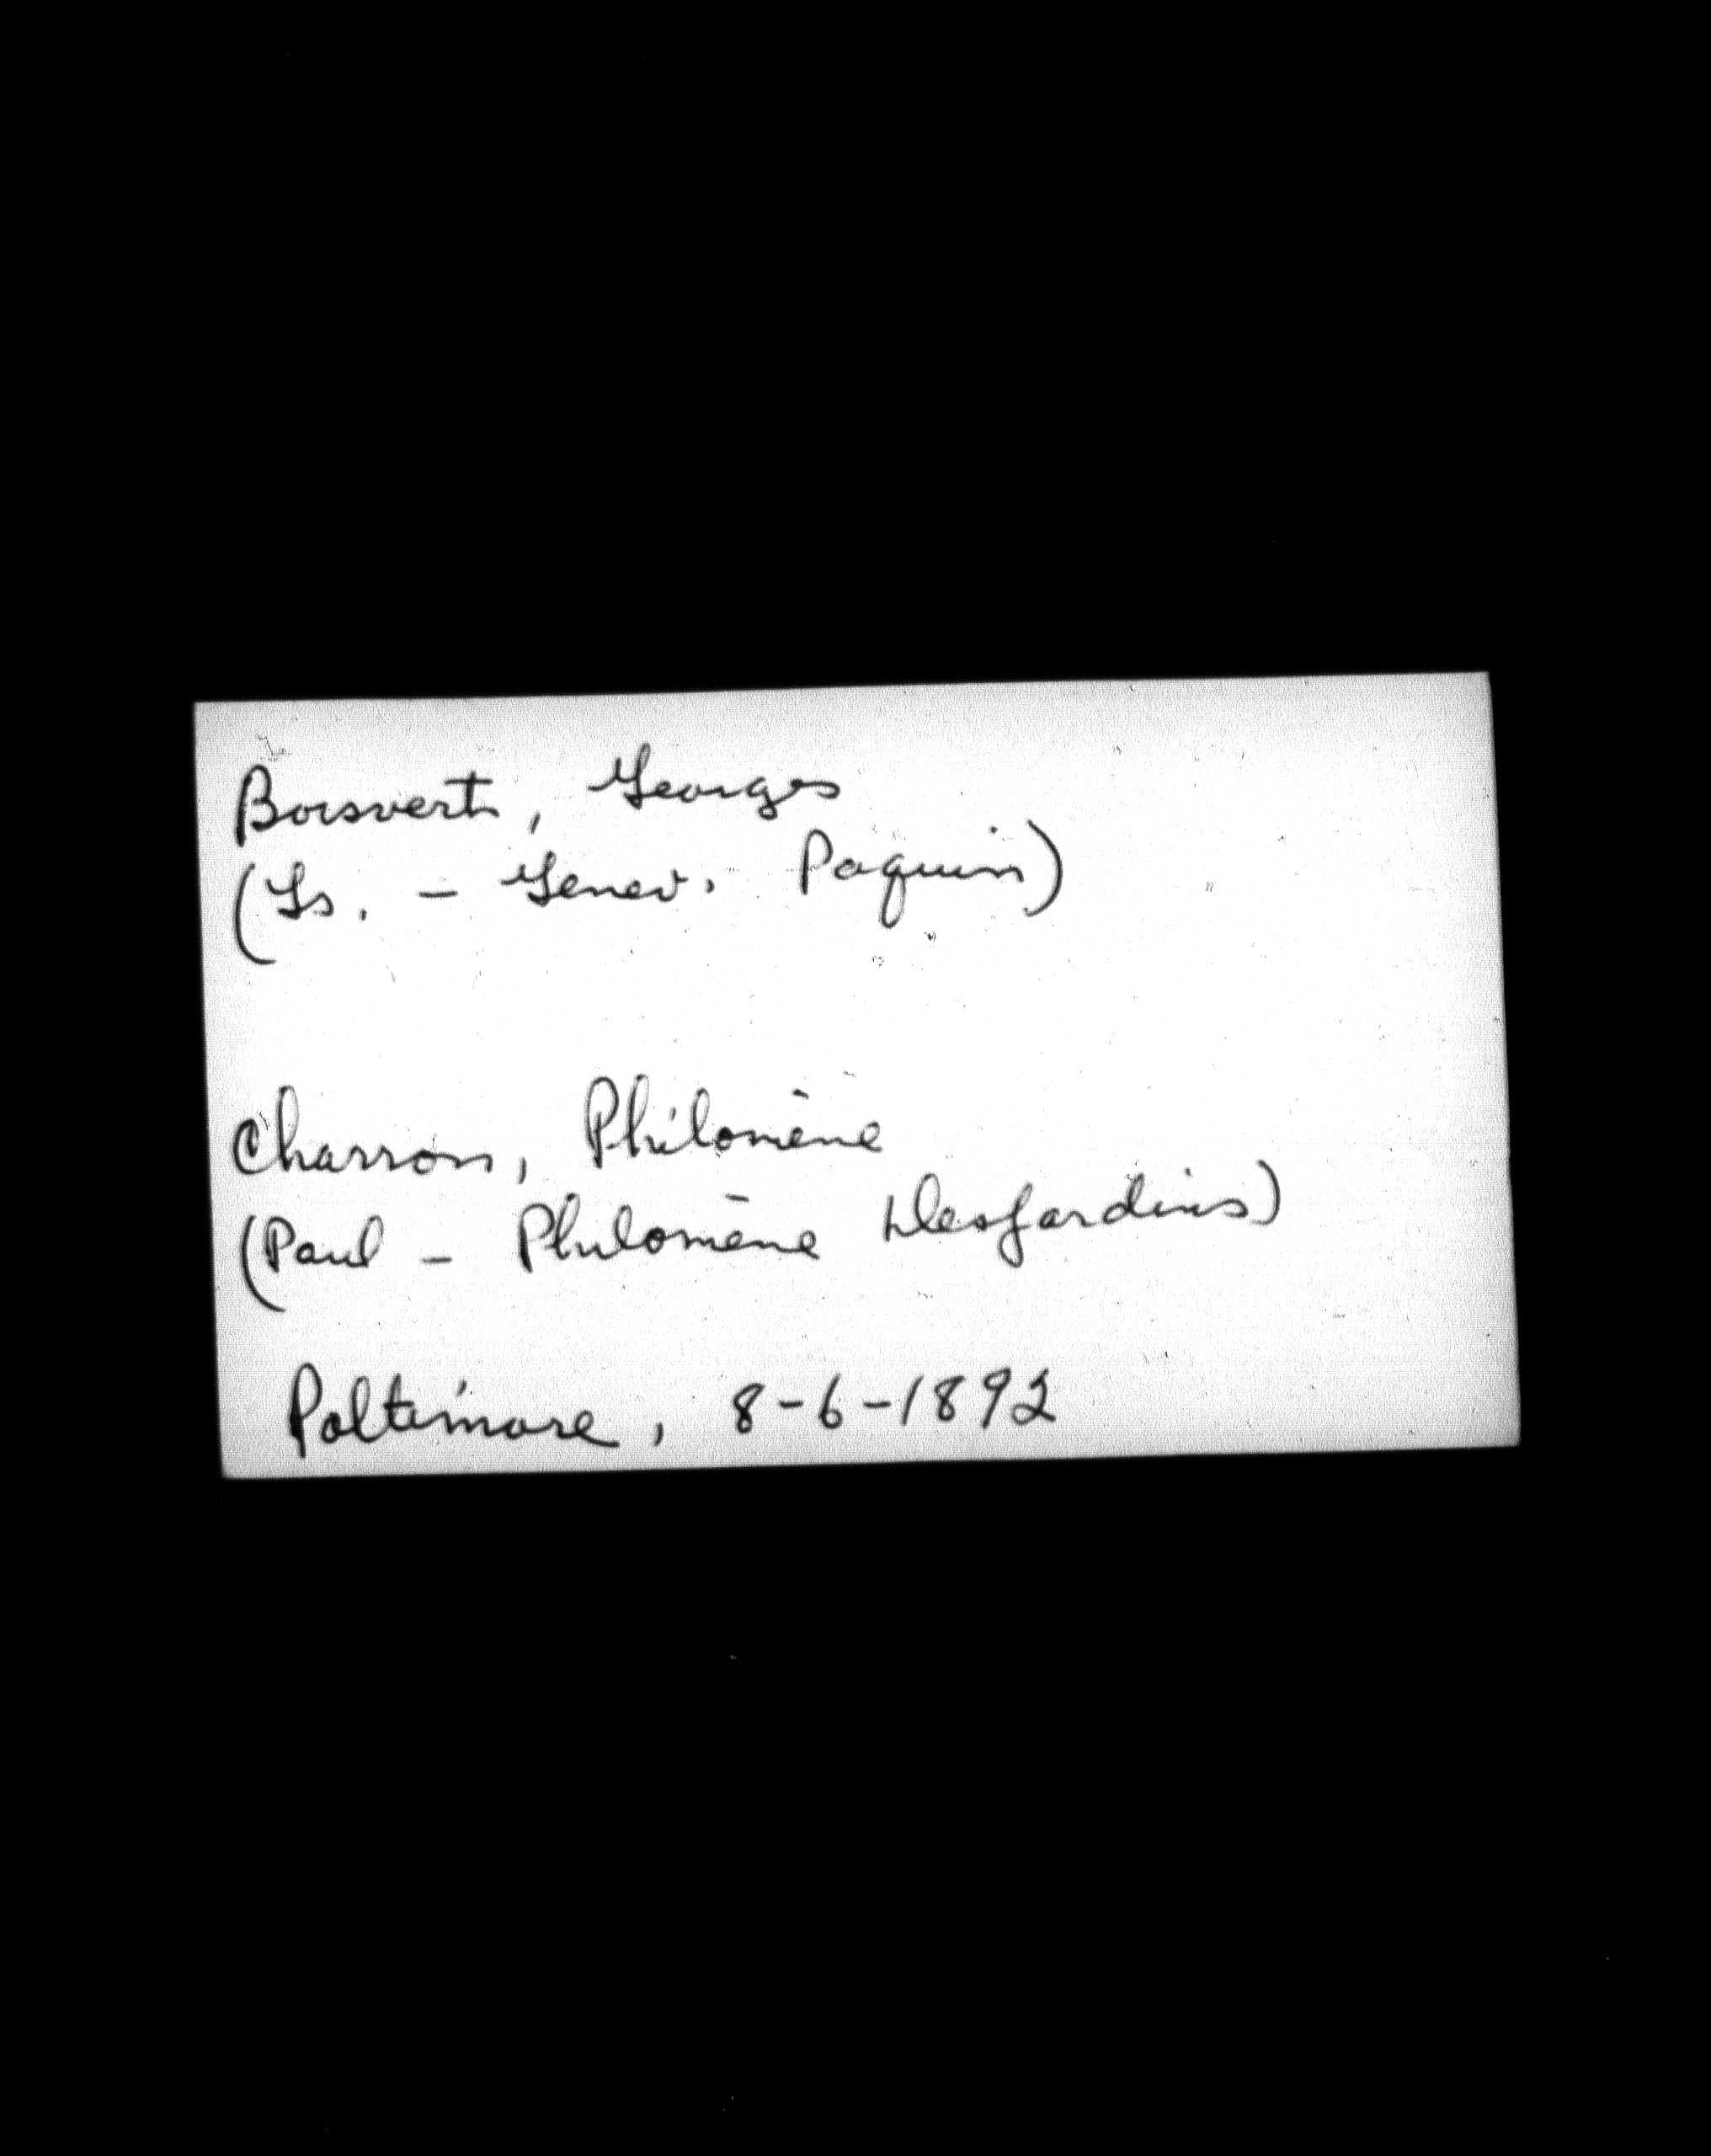 Boisvert, Georges
(Ls. - Genev. Paquin)
Charron, Philomène
(Paul - Philomène Desjardins)
Poltimore, 8-6-1892